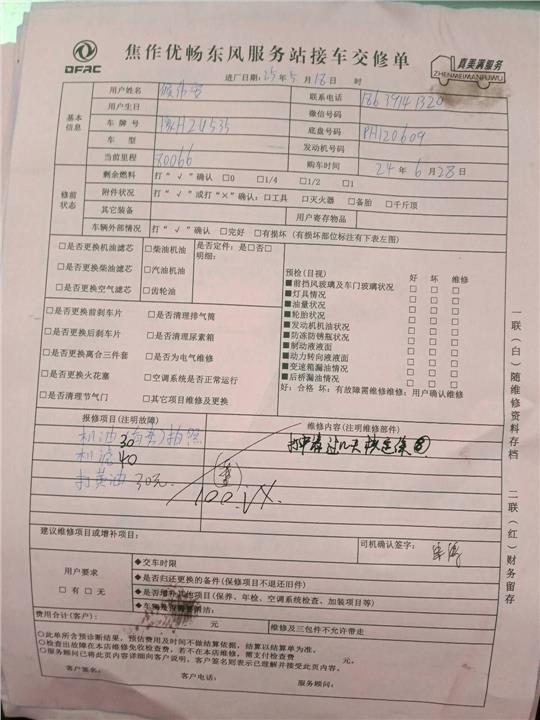 DFAC
焦作优畅东风服务站接车交修单
真美满服务
ZHENMEIMANFUWU
进厂日期: 25年5月18日 时
基本信息
用户姓名
联系电话 18639141320
用户生日
微信号码
车牌号
底盘号码 PH120609
车型
发动机号码
当前里程 80066
购车时间 24年6月28日
修前状态
剩余燃料 打"√"确认 □0 □1/4 □1/2 □1
附件状况 打"√"或打"×"确认:□工具 □灭火器 □备胎 □千斤顶
其它装备
用户寄存物品
车辆外部情况 打"√"确认 □完好 □有损坏 (有损坏部位标注有下表左图)
□是否更换机油滤芯 □柴油机油 是否定件: 是□否□
明细:
□是否更换柴油滤芯 □汽油机油
□是否更换空气滤芯 □齿轮油
预检(目视) 好 坏 维修
■前挡风玻璃及车门玻璃状况 □ □ □
■灯具情况 □ □ □
■油量状况 □ □ □
■轮胎状况 □ □ □
■发动机机油状况 □ □ □
■防冻防锈瓶状况 □ □ □
■制动液液面 □ □ □
■动力转向液液面 □ □ □
■变速箱漏油情况 □ □ □
■后桥漏油情况 □ □ □
好: 合格 坏: 有故障需维修维修: 用户确认维修
□是否更换前刹车片 □是否清理排气筒
□是否更换后刹车片 □是否清理尿素箱
□是否更换离合三件套 □是否为电气维修
□是否更换火花塞 □空调系统是否正常运行
□是否清理节气门 □其它项目维修及更换
报修项目(注明故障)
维修内容(注明维修部件)
机油30 拍照
机滤40
打黄油 30元
100.VX.
建议维修项目或增补项目:
司机确认签字:
用户要求
□有 □无
◆交车时限
◆是否归还更换的备件(保修项目不退还旧件)
◆是否增补其他项目(保养、年检、空调系统检查、加装项目等)
费用合计(客户): 元
维修及三包件不允许带走
○此单所含预诊断结果, 预估费用及时间不做结算依据, 结算以结算单为准。
○检查出故障在本店维修免收检查费, 若不在本店维修, 需支付检查费 元。
○服务顾问已将此页内容详细向客户说明, 客户签名则表示已理解并接受此页内容。
客户签名: 客户电话: 服务顾问:
一联(白)随维修资料存档 二联(红)财务留存